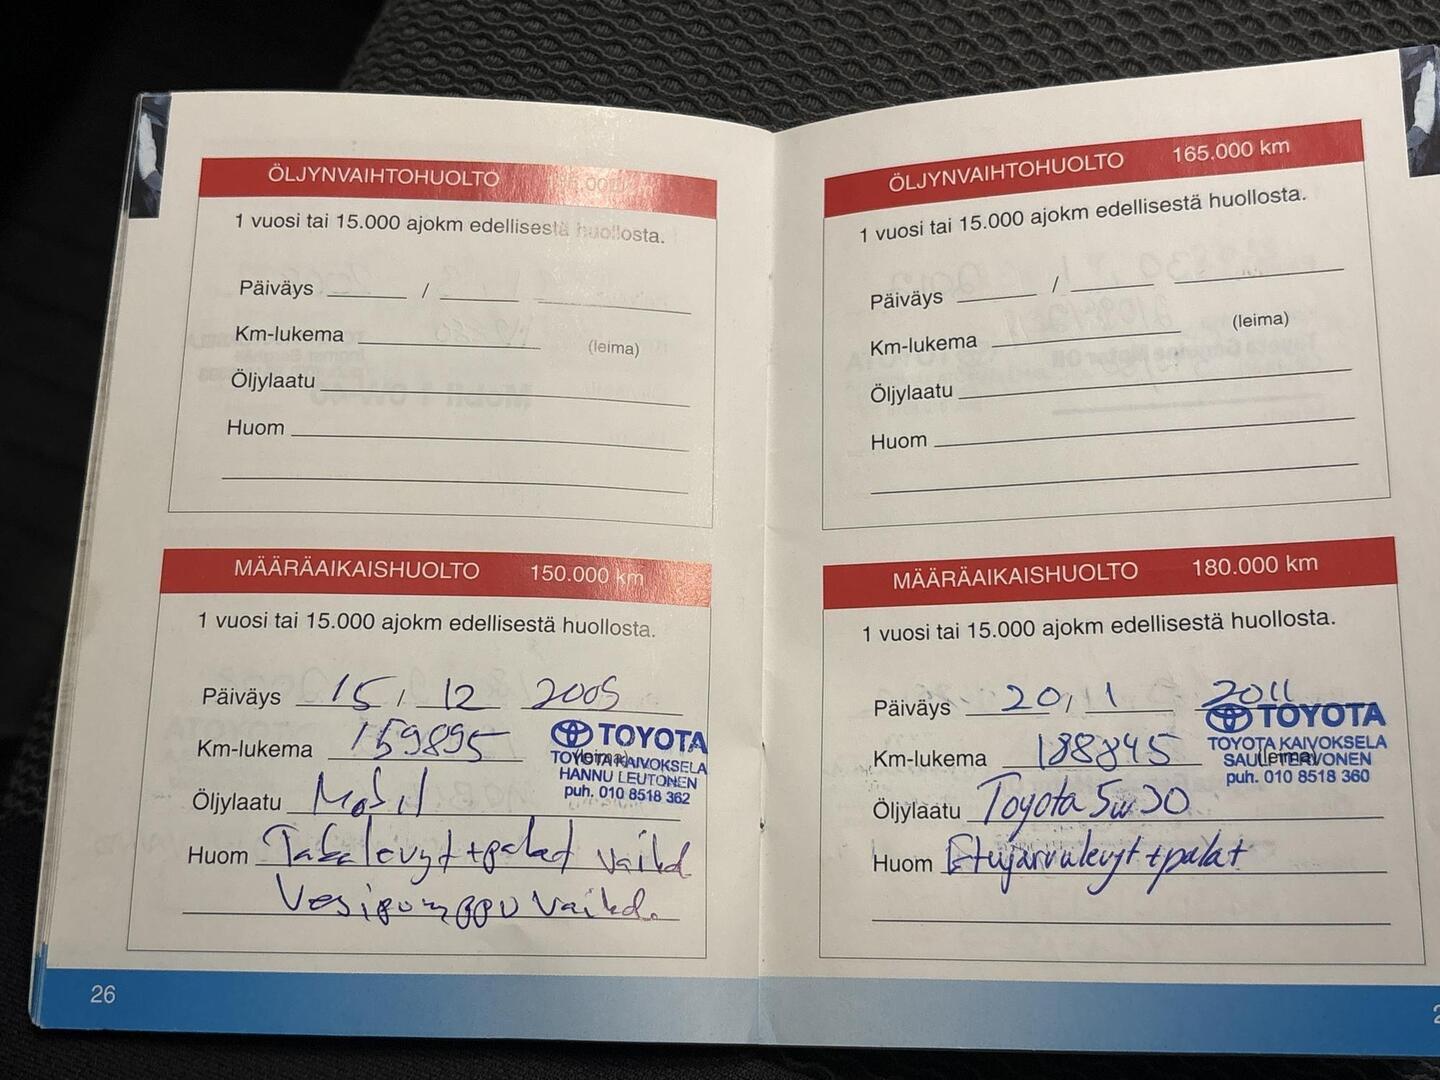 ÖLJYNVAIHTOHUOLTO
1 vuosi tai 15.000 ajokm edellisestä huollosta.
Päiväys / 
Km-lukema (leima)
Öljylaatu
Huom
MÄÄRÄAIKAISHUOLTO 150.000 km
1 vuosi tai 15.000 ajokm edellisestä huollosta.
Päiväys 15, 12 2009
Km-lukema 159895 (leima)
TOYOTA
TOYOTA KAIVOKSELA
HANNU LEUTONEN
puh. 010 8518 362
Öljylaatu Mobil
Huom Takalevyt + palat vaihd
Vesipumppu vaihd.
26
ÖLJYNVAIHTOHUOLTO 165.000 km
1 vuosi tai 15.000 ajokm edellisestä huollosta.
Päiväys /
Km-lukema (leima)
Öljylaatu
Huom
MÄÄRÄAIKAISHUOLTO 180.000 km
1 vuosi tai 15.000 ajokm edellisestä huollosta.
Päiväys 20, 1 2011
Km-lukema 188845 (leima)
TOYOTA
TOYOTA KAIVOKSELA
SAULI TERVONEN
puh. 010 8518 360
Öljylaatu Toyota 5w30
Huom Etujarrulevyt + palat